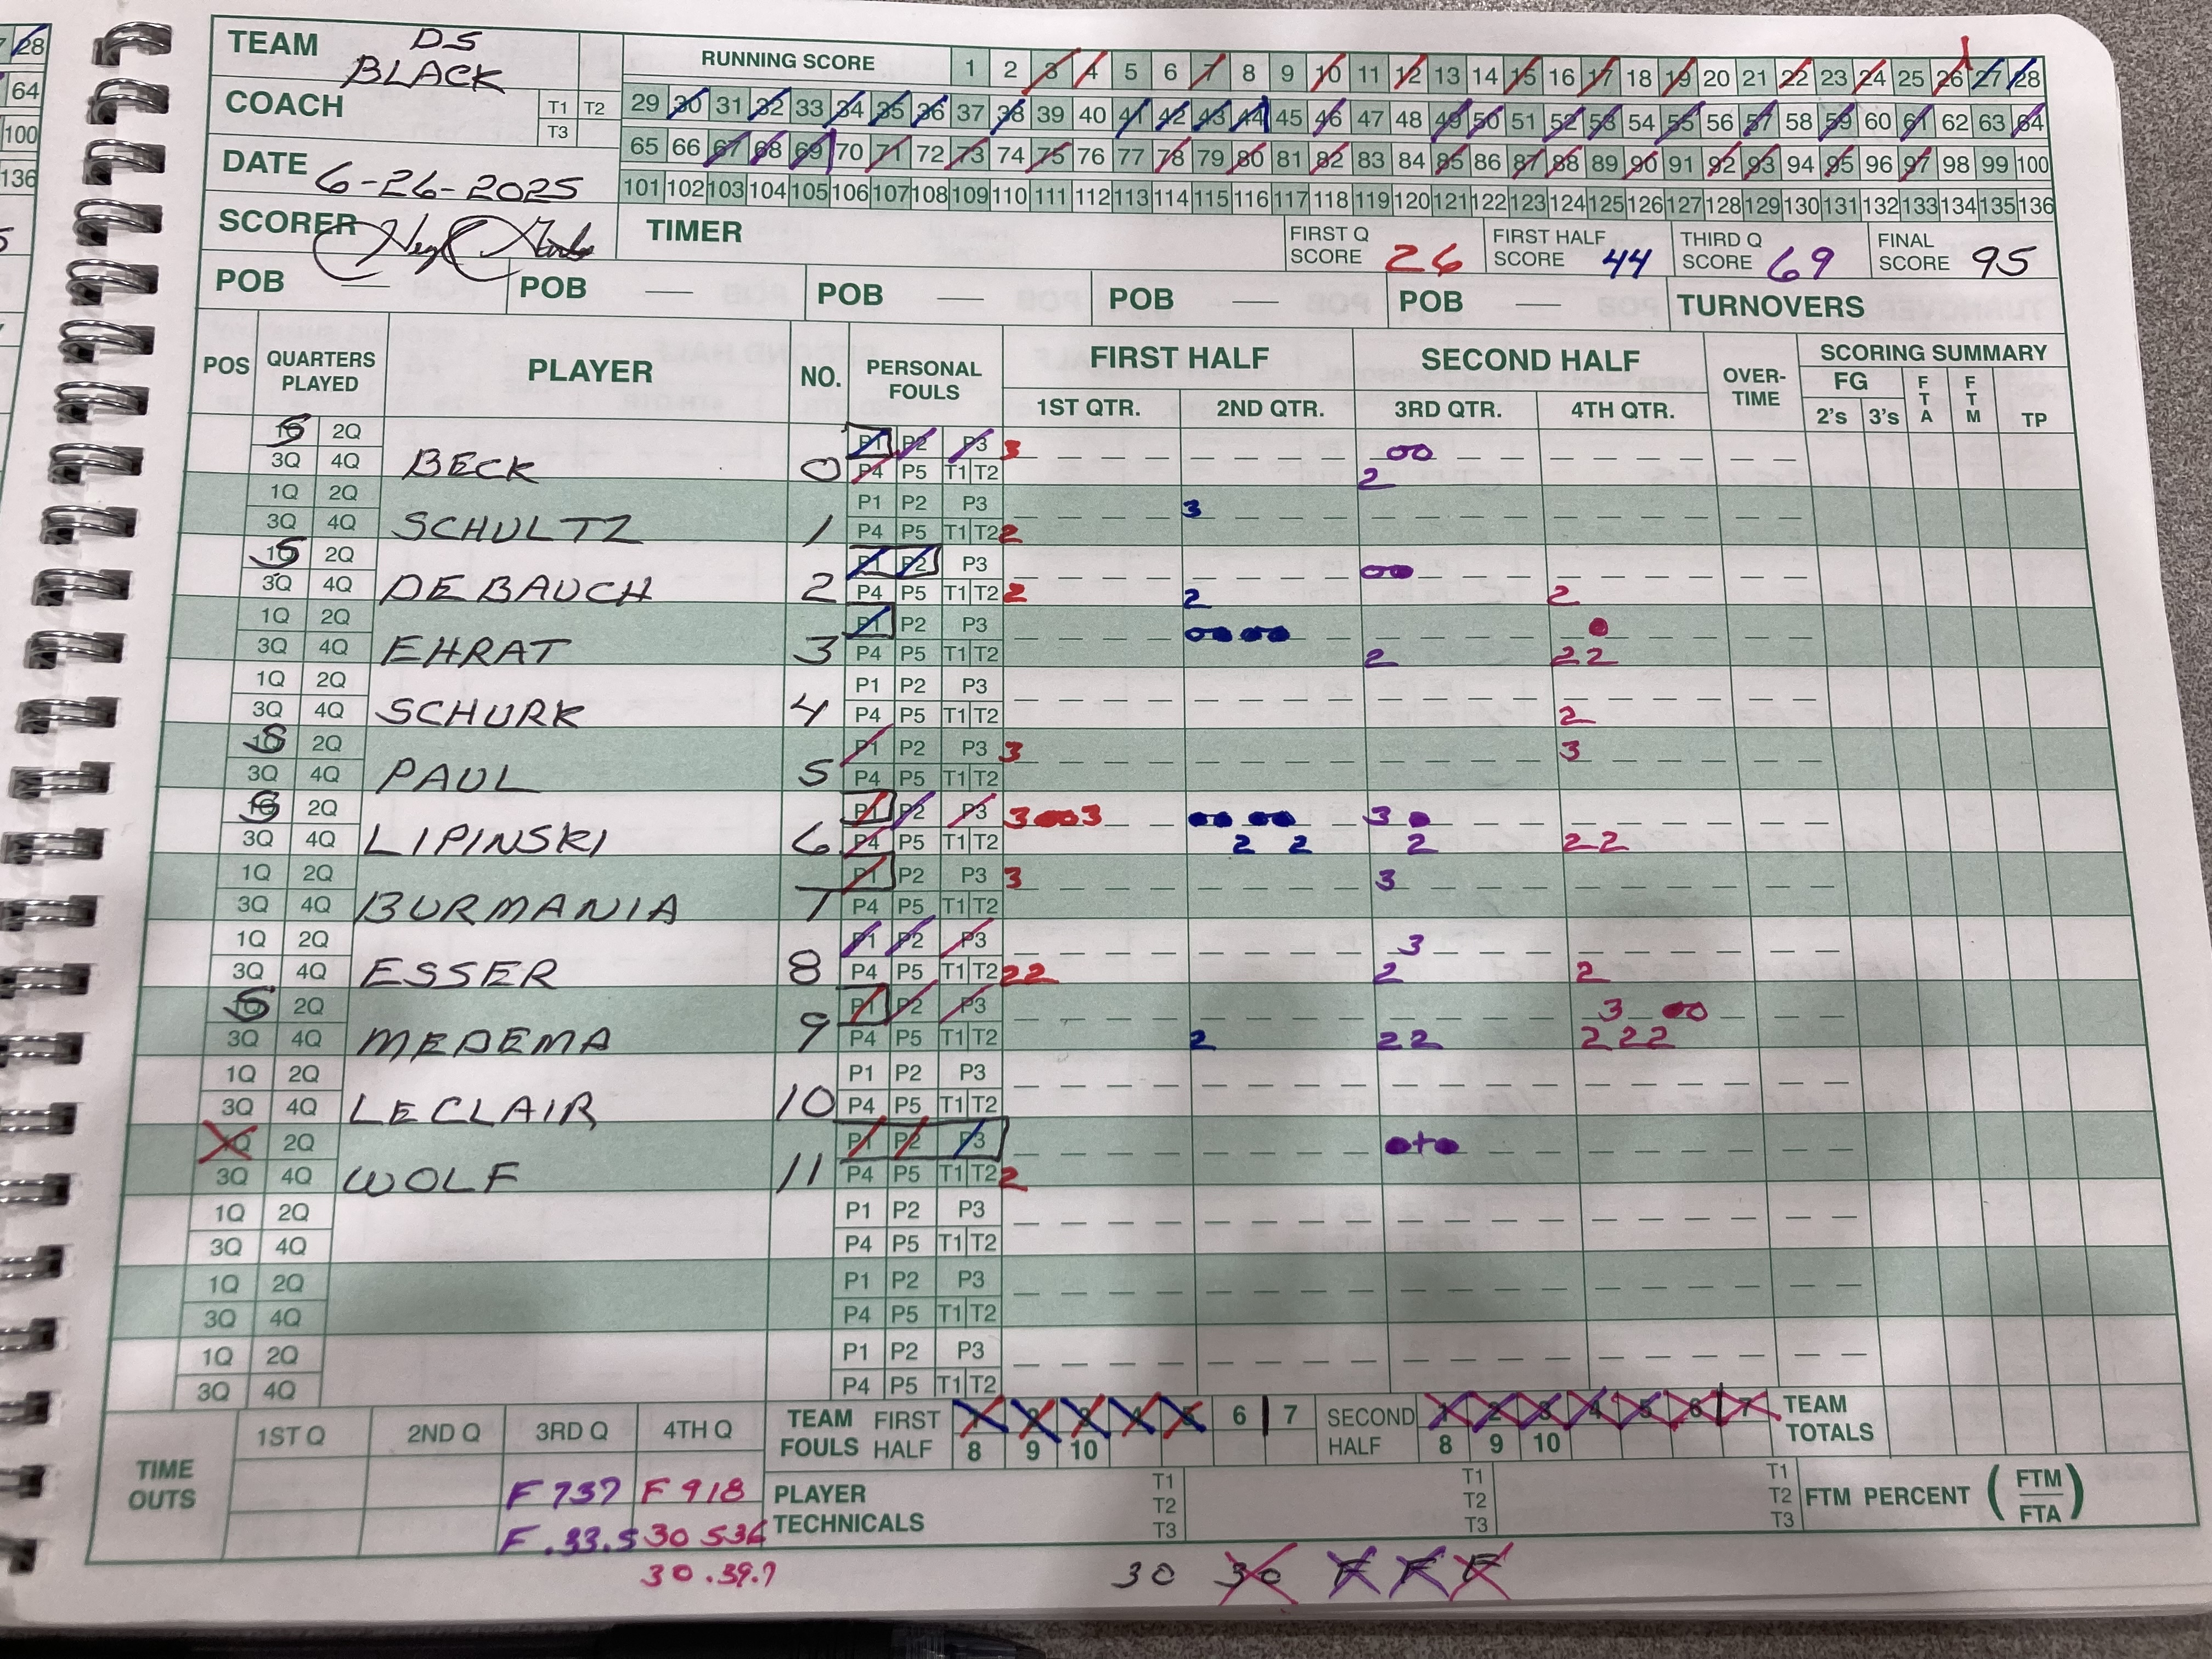 TEAM DS BLACK
RUNNING SCORE 1 2 3 4 5 6 7 8 9 10 11 12 13 14 15 16 17 18 19 20 21 22 23 24 25 26 27 28
COACH T1 T2 T3
29 30 31 32 33 34 35 36 37 38 39 40 41 42 43 44 45 46 47 48 49 50 51 52 53 54 55 56 57 58 59 60 61 62 63 64
65 66 67 68 69 70 71 72 73 74 75 76 77 78 79 80 81 82 83 84 85 86 87 88 89 90 91 92 93 94 95 96 97 98 99 100
DATE 6-26-2025
101 102 103 104 105 106 107 108 109 110 111 112 113 114 115 116 117 118 119 120 121 122 123 124 125 126 127 128 129 130 131 132 133 134 135 136
SCORER
TIMER
FIRST Q SCORE 26
FIRST HALF SCORE 44
THIRD Q SCORE 69
FINAL SCORE 95
POB — POB — POB — POB — POB — TURNOVERS
POS QUARTERS PLAYED PLAYER NO. PERSONAL FOULS FIRST HALF SECOND HALF OVER-TIME SCORING SUMMARY
1ST QTR. 2ND QTR. 3RD QTR. 4TH QTR. FG 2's 3's FTA FTM TP
S 2Q P1 P2 P3 3
3Q 4Q BECK 0 P4 P5 T1 T2 2
1Q 2Q P1 P2 P3 3
3Q 4Q SCHULTZ 1 P4 P5 T1 T2 2
S 2Q P1 P2 P3
3Q 4Q DEBAUCH 2 P4 P5 T1 T2 2 2 2
1Q 2Q P1 P2 P3
3Q 4Q EHRAT 3 P4 P5 T1 T2 2 2 2
1Q 2Q P1 P2 P3
3Q 4Q SCHURK 4 P4 P5 T1 T2 2
S 2Q P1 P2 P3 3 3
3Q 4Q PAUL 5 P4 P5 T1 T2
S 2Q P1 P2 P3 3 3 3
3Q 4Q LIPINSKI 6 P4 P5 T1 T2 2 2 2 2 2
1Q 2Q P1 P2 P3 3 3
3Q 4Q BURMANIA 7 P4 P5 T1 T2
1Q 2Q P1 P2 P3 3
3Q 4Q ESSER 8 P4 P5 T1 T2 2 2 2 2
S 2Q P1 P2 P3 3
3Q 4Q MEDEMA 9 P4 P5 T1 T2 2 2 2 2 2 2
1Q 2Q P1 P2 P3
3Q 4Q LECLAIR 10 P4 P5 T1 T2
1Q 2Q P1 P2 P3
3Q 4Q WOLF 11 P4 P5 T1 T2 2
1Q 2Q P1 P2 P3
3Q 4Q P4 P5 T1 T2
1Q 2Q P1 P2 P3
3Q 4Q P4 P5 T1 T2
1Q 2Q P1 P2 P3
3Q 4Q P4 P5 T1 T2
TIME OUTS 1ST Q 2ND Q 3RD Q 4TH Q
F 737 F 918
F .33.5 30 536
30 .39.7
TEAM FOULS FIRST HALF 1 2 3 4 5 6 7 8 9 10
SECOND HALF 1 2 3 4 5 6 7 8 9 10
TEAM TOTALS
PLAYER TECHNICALS T1 T2 T3 T1 T2 T3 T1 T2 T3
FTM PERCENT (FTM FTA)
30 30 F F F
28
64
100
136